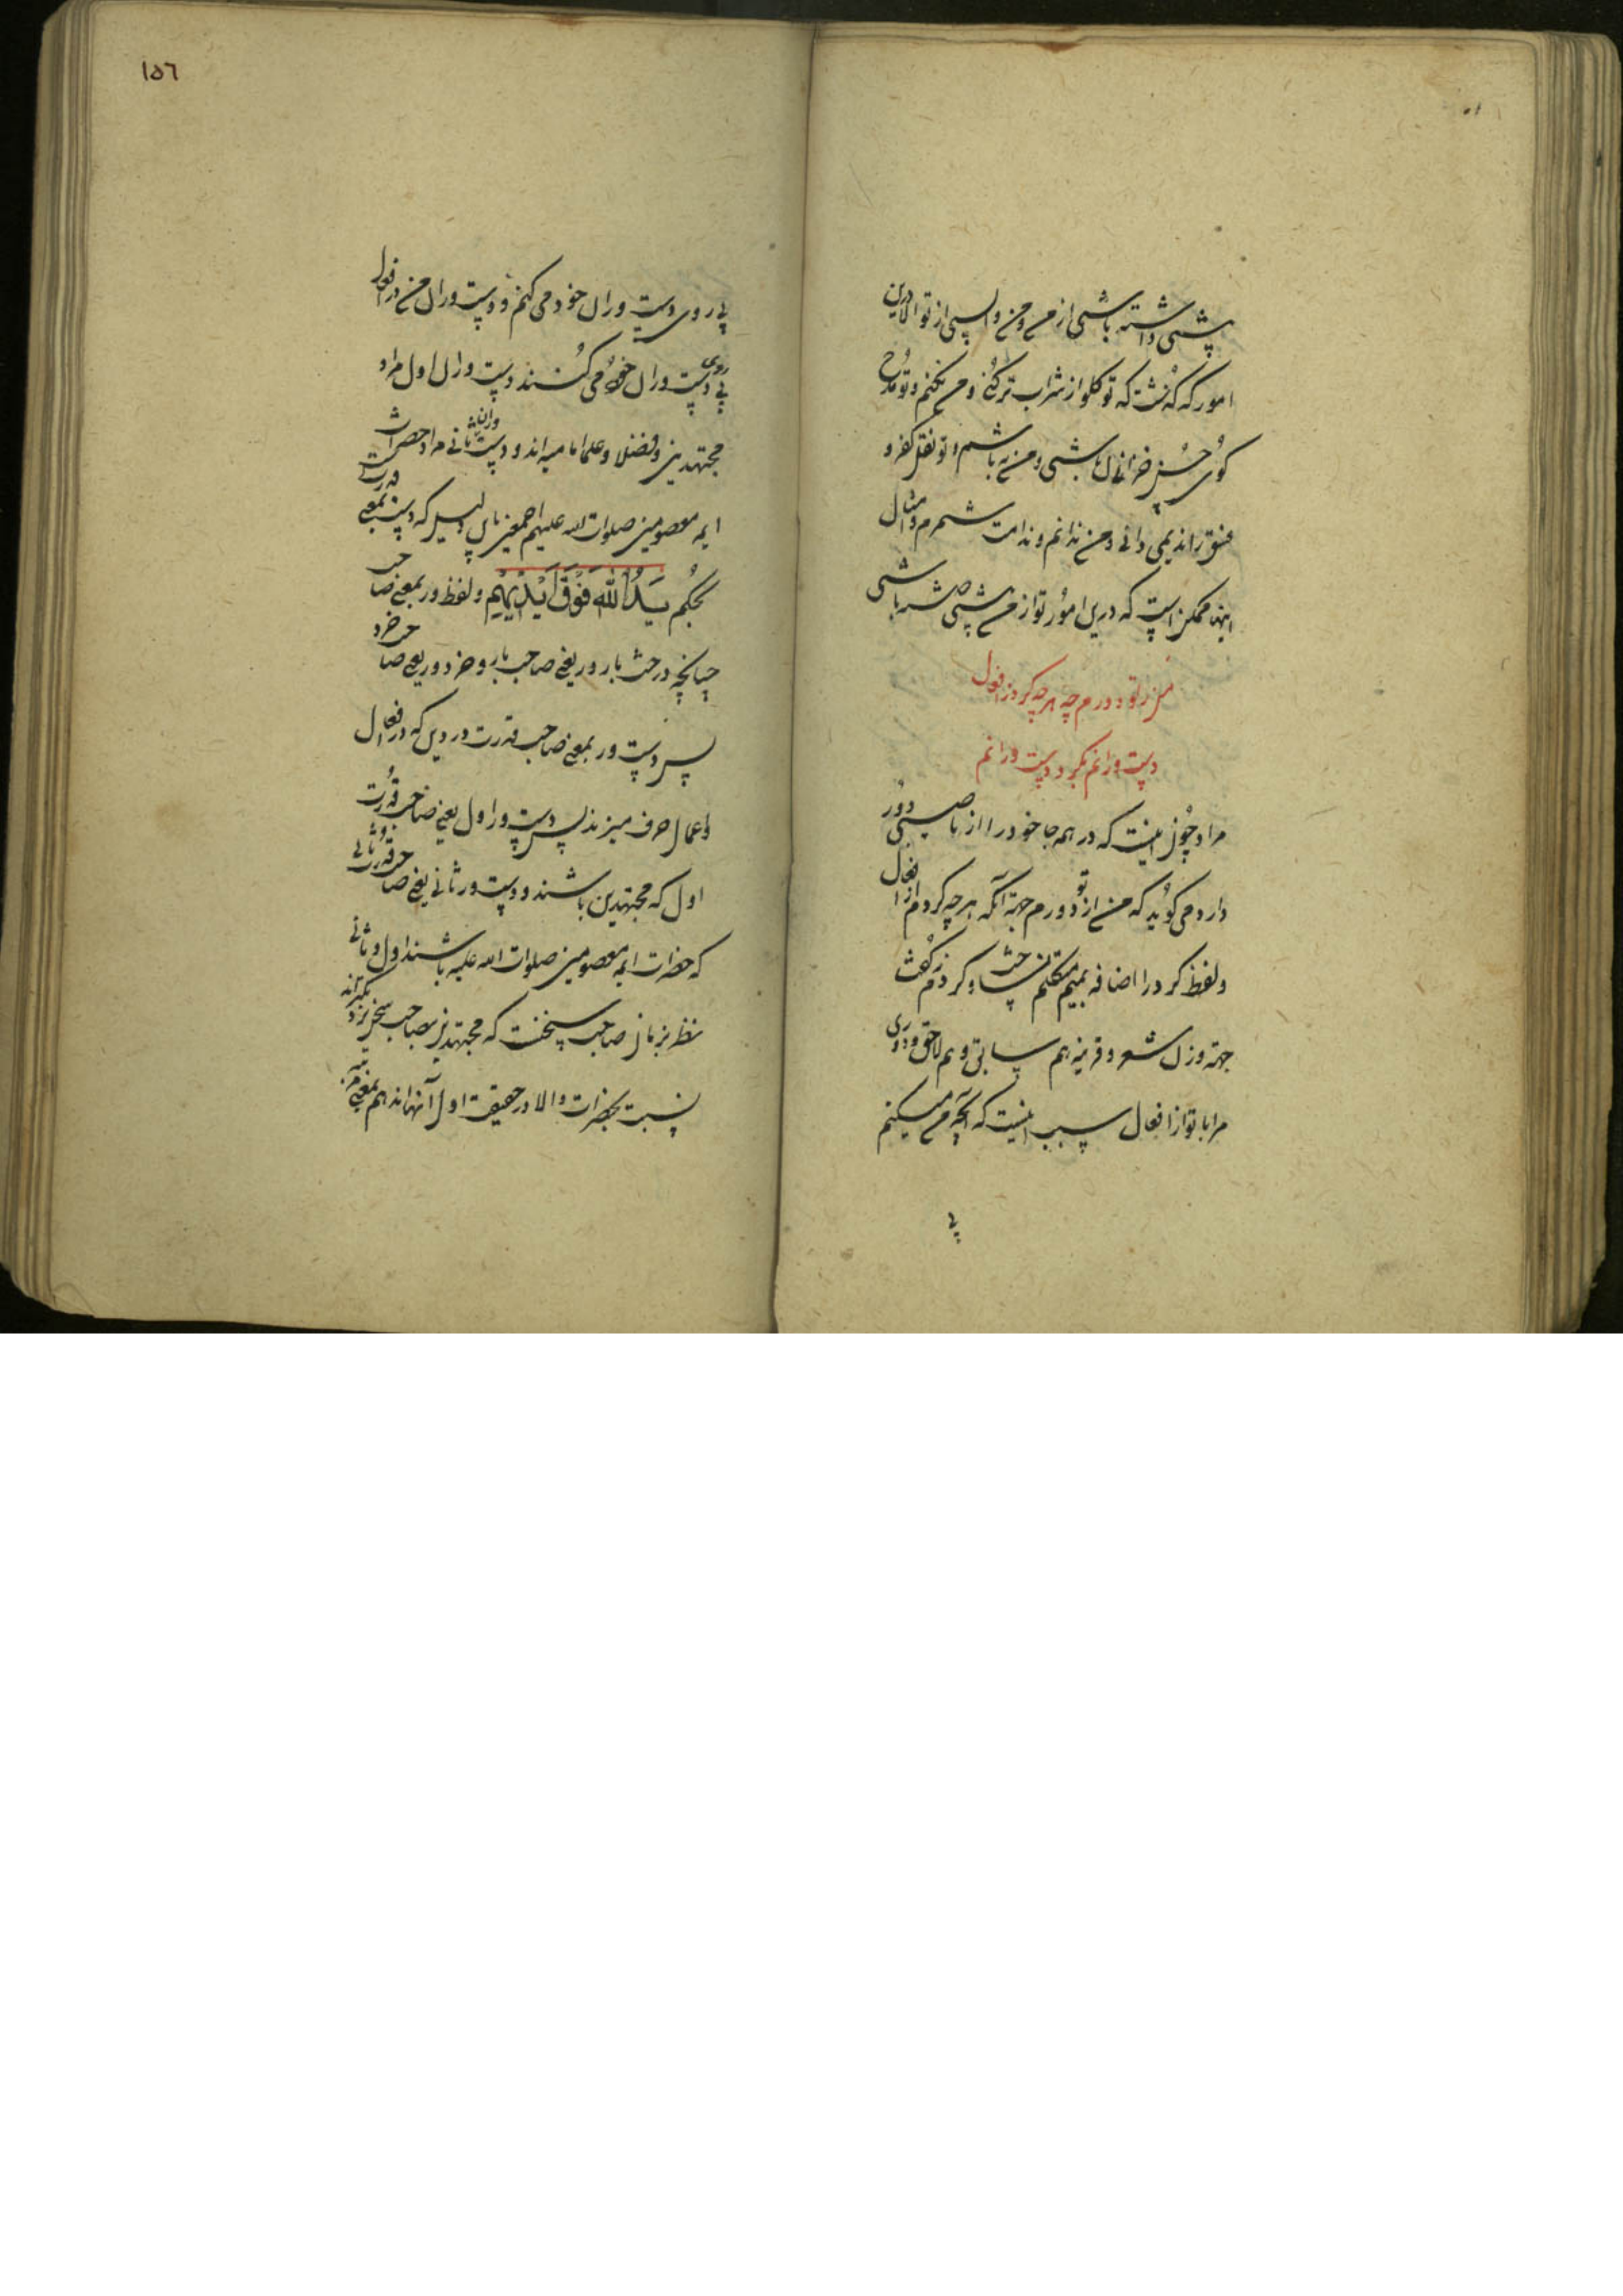 پیشی داشته باشی از من و من واپسی از تو الا درین
امور که گذشت که تو گلو از شراب تر کنی و من نکنم و تو مداح
کوی حسن باشی و من نه باشم و تو نقل کفر و
فسق را ندیمی دانی و من ندانم و ندامت شمرم و امثال
اینها ممکن است که درین امور تو از من پیشی جسته باشی
من ز تو دورم چه هر چه کرد ز افعال
دست ورانم نکرد دست ورانم
مراد چون اینست که در همه جا خود را از ناصبی دور
دارد می گوید که من از تو دورم جهة آنکه هر چه کردم از افعال
ولفظ کرد را اضافه بمیم متکلم نساخت و کردم نگفت
جهة وزن شعر و قرینه هم سابق و هم لاحق و دوری
مرا با تو از افعال سبب اینست که آنچه من میکنم
پی
١٥٦
پی روی دست وران خود می کنم و دست وران من در افعال
پی روی دست وران خود می کنند دست وران اول مراد
مجتهدین و فضلا و علما امامیه اند و دست وران ثانی مراد حضرات
ایمه معصومین صلوات الله علیهم اجمعین باین دلیل که دست بمعنی قدرت
بحکم یَدُ اللّٰهِ فَوْقَ اَیْدِیْهِمْ ولفظ ور بمعنی صاحب
چنانچه درخت بارور یعنی صاحب بار و خردور یعنی صاحب خرد
پس دست ور بمعنی صاحب قدرت در دین که در افعال
و اعمال حرف میزند پس دست ور اول یعنی صاحب قدرت
اول که مجتهدین باشند و دست ور ثانی یعنی صاحب قدرت ثانی
که حضرات ایمه معصومین صلوات الله علیه باشند اول و ثانی
نظر بزمان صاحب سخنست که مجتهدین بصاحب سخن نزدیکترند
نسبت بحضرات والا در حقیقت اول آنها اند هم بمعنی مرتبه